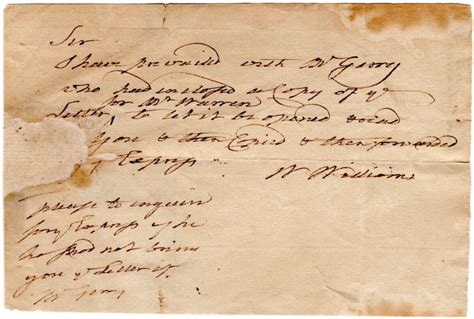 Sir
I have prevailed with Mr Georg
who had inclosed a Copy of ye
for Mr Warren
Letter, to let it be opened & read
you & then Copied & then forwarded
Express
W Williams
please to enquire
Express if he
had not bring
you ye Letter of
Mr